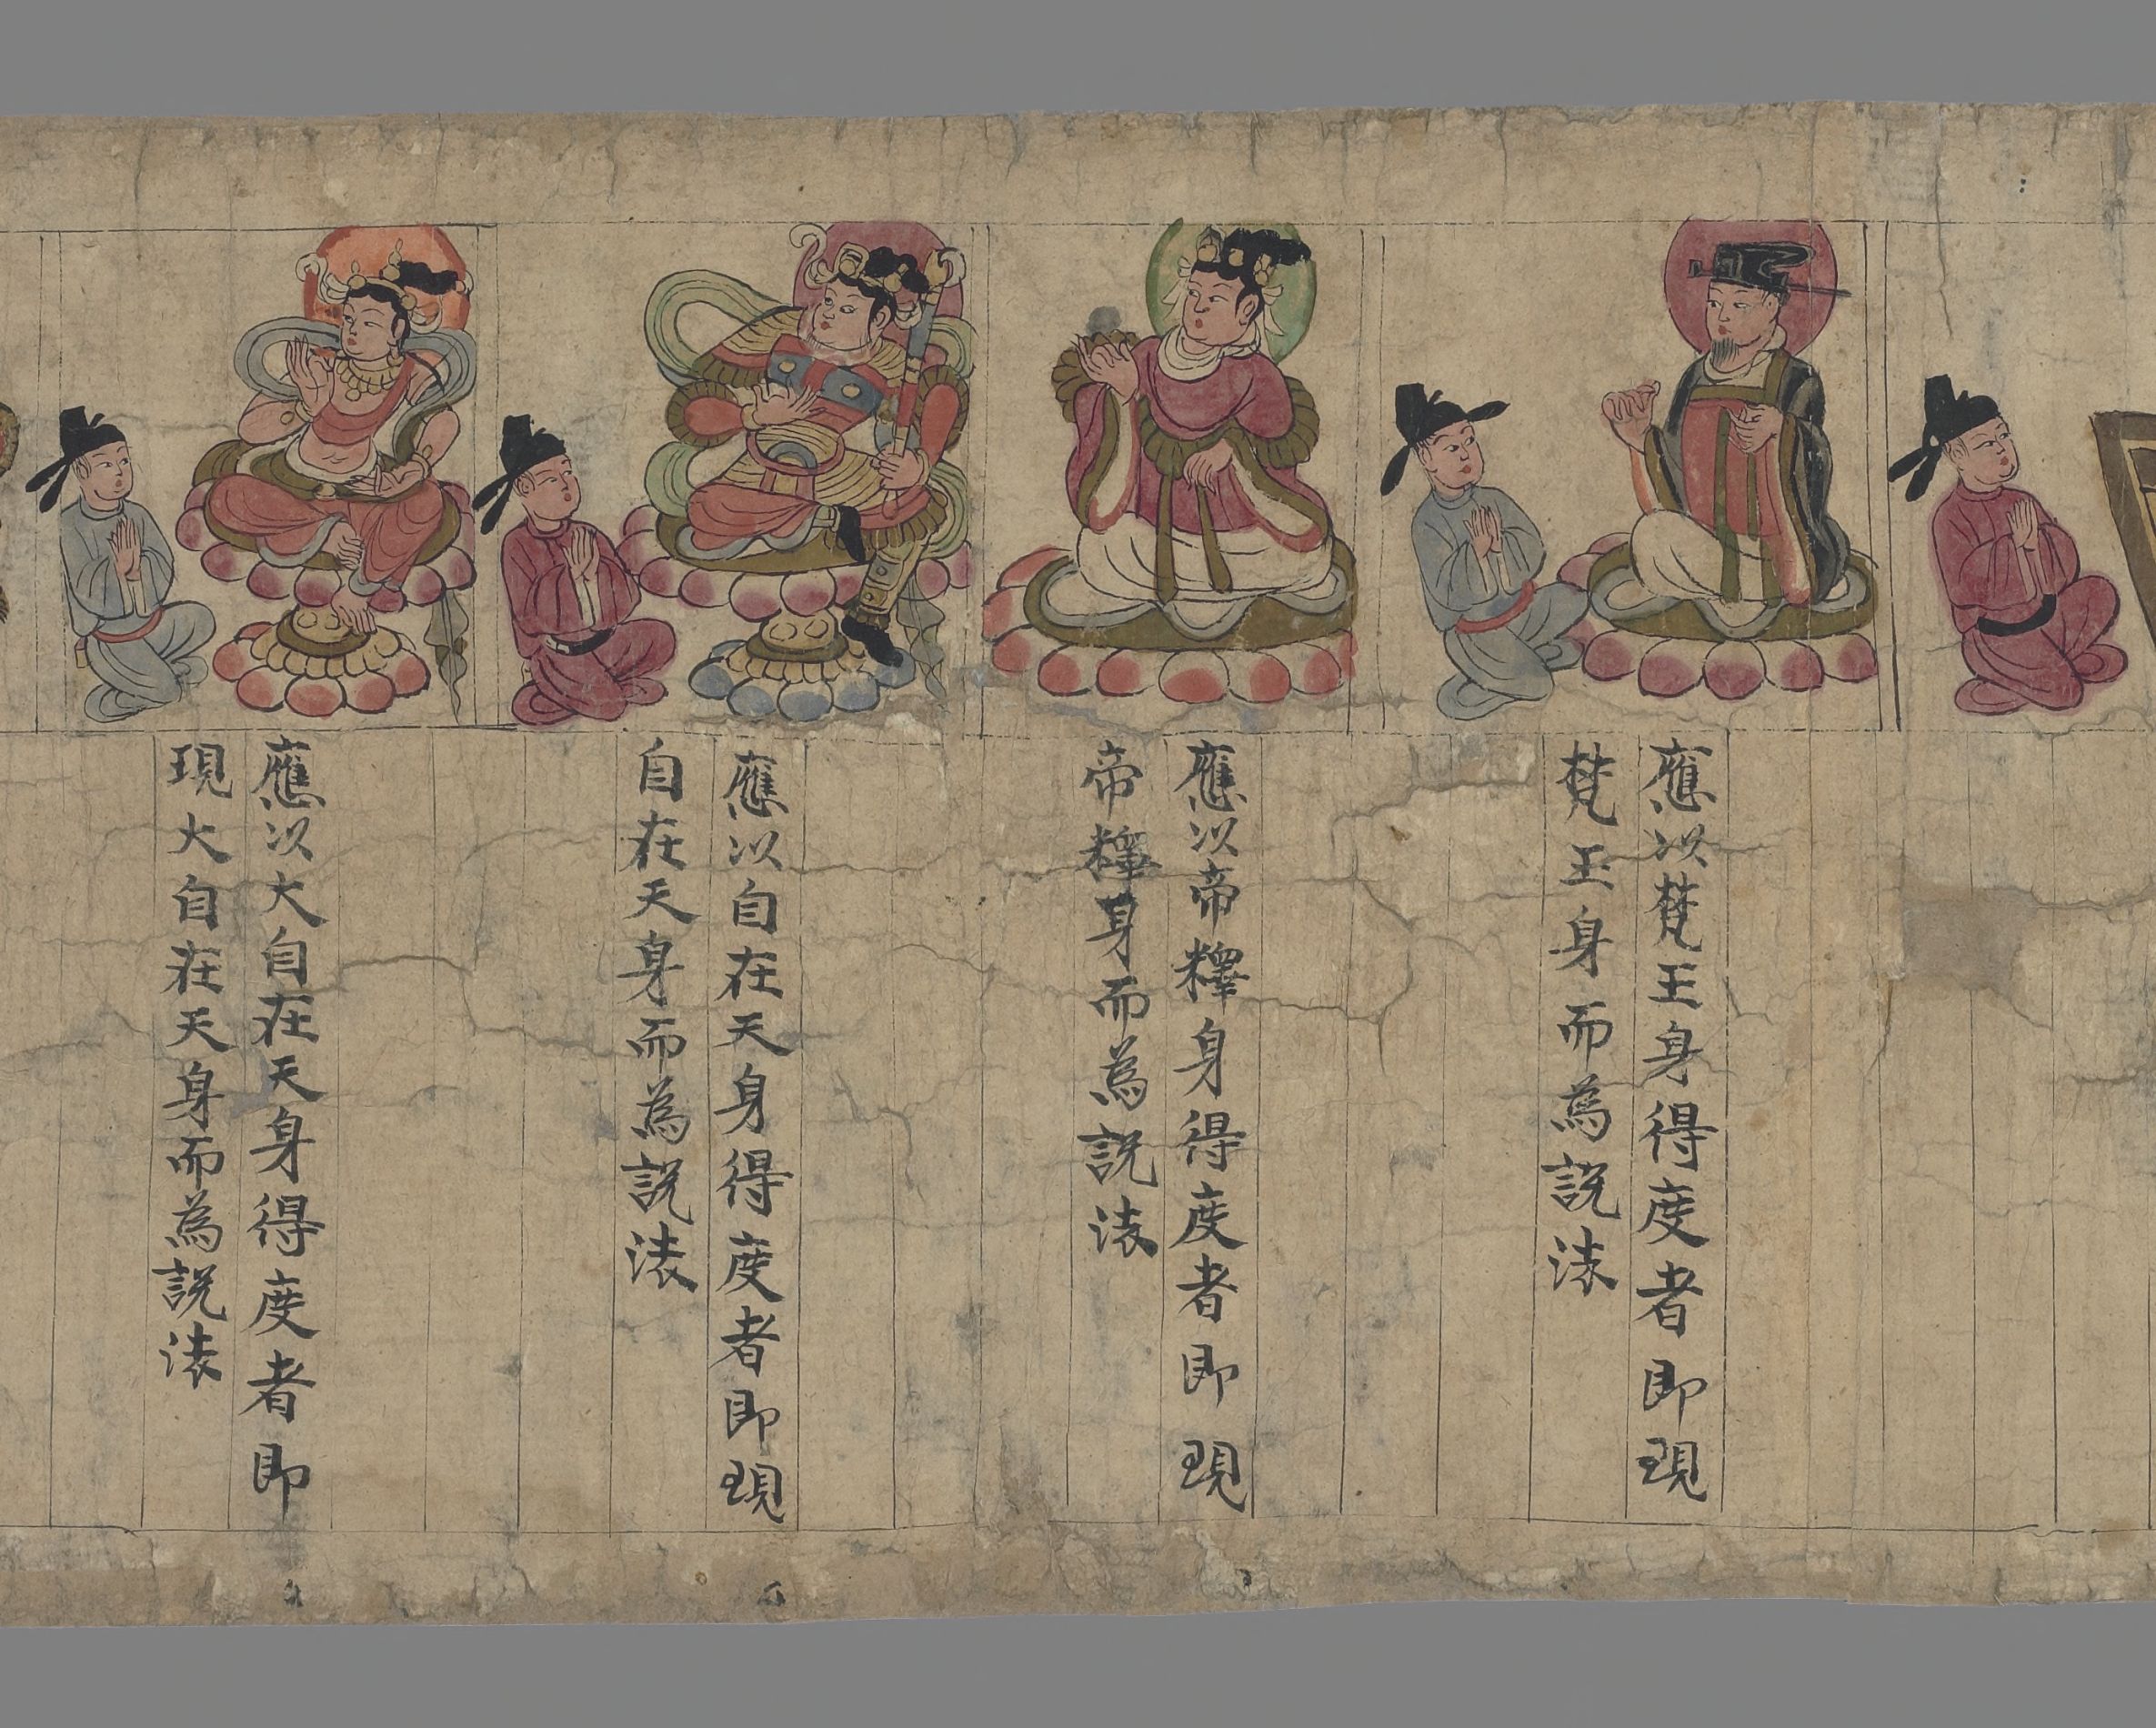 應以梵王身得度者即現
梵王身而為說法
應以帝釋身得度者即現
帝釋身而為說法
應以自在天身得度者即現
自在天身而為說法
應以大自在天身得度者即
現大自在天身而為說法